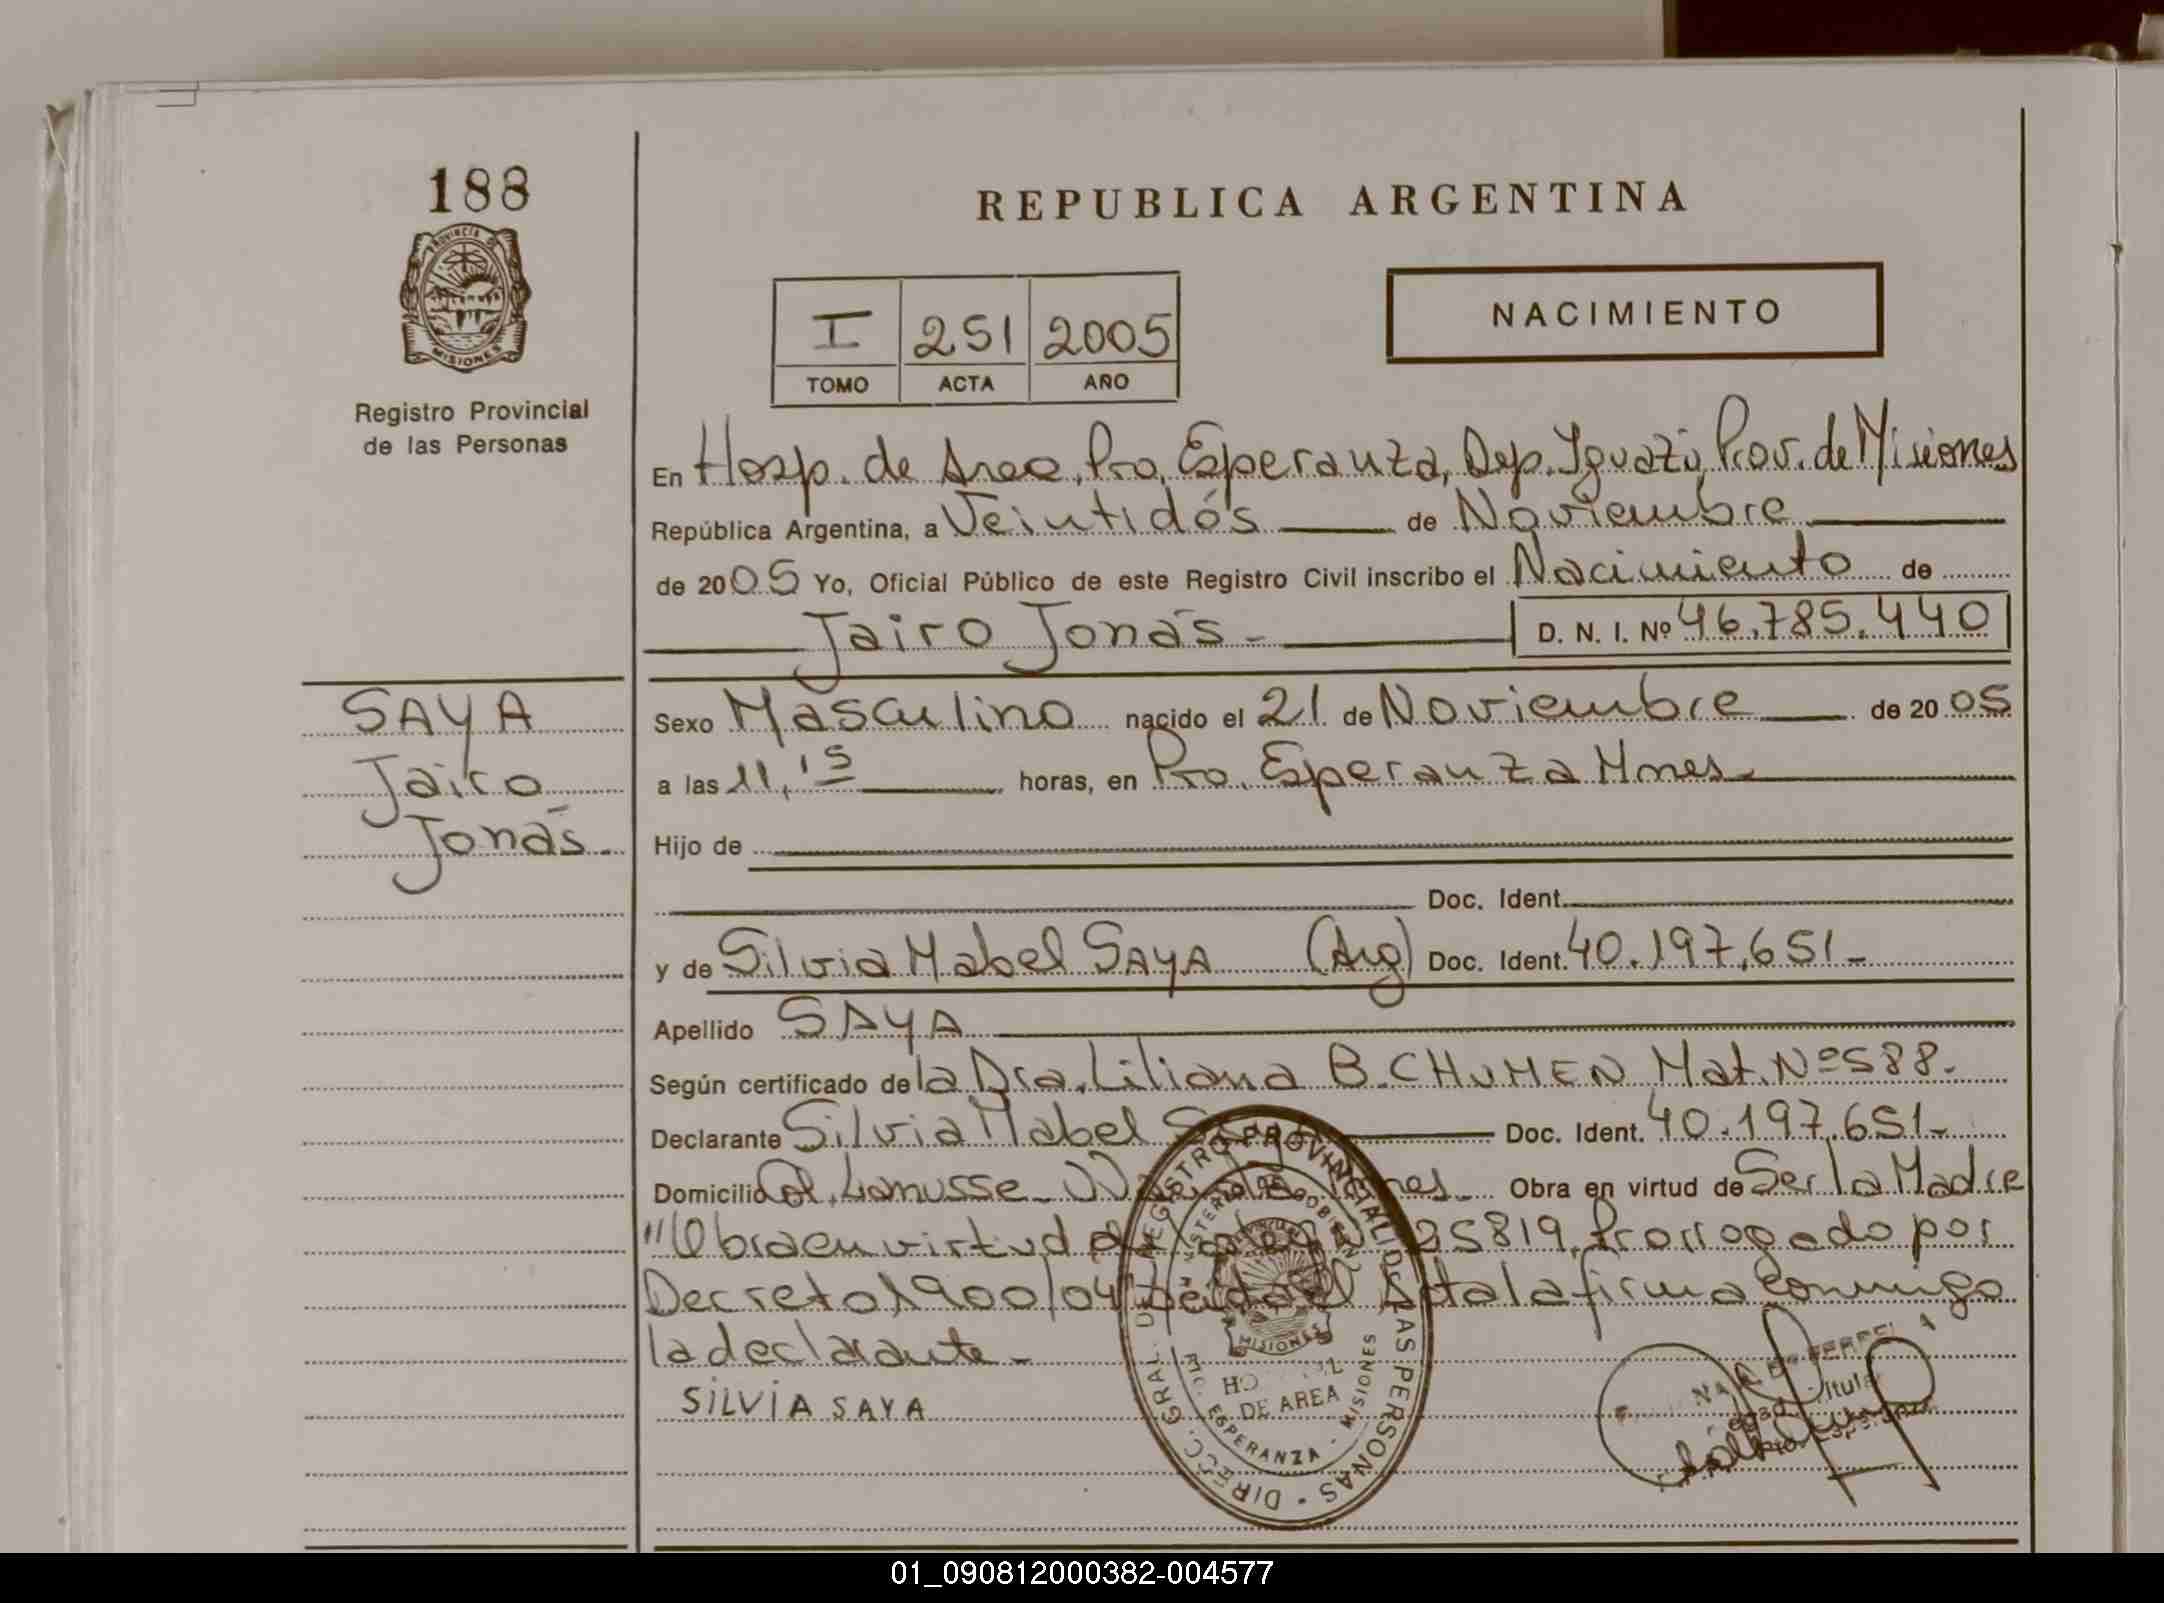 188
PROVINCIA DE
MISIONES
Registro Provincial
de las Personas
REPUBLICA ARGENTINA
I 251 2005
TOMO ACTA AÑO
NACIMIENTO
En Hosp. de Area, Pto. Esperanza, Dep. Iguazú, Prov. de Misiones
República Argentina, a Veintidós de Noviembre
de 2005 Yo, Oficial Público de este Registro Civil inscribo el Nacimiento de
Jairo Jonás- D. N. I. Nº 46.785.440
SAYA
Jairo
Jonás-
Sexo Masculino nacido el 21 de Noviembre de 2005
a las 11,15 horas, en Pto. Esperanza Mnes-
Hijo de
Doc. Ident.
y de Silvia Mabel SAYA (Arg) Doc. Ident. 40.197.651-
Apellido SAYA
Según certificado de la Dra. Liliana B. CHUMEN Mat. Nº 588-
Declarante Silvia Mabel Doc. Ident. 40.197.651-
Domicilio Col. Lanusse- Obra en virtud de Ser la Madre
"Obra en virtud 25819, Prorrogado por
Decreto 1900/04" Leída el Acta la firma conmigo
la declarante-
SILVIA SAYA
DIREC. GRAL. DEL REGISTRO PROVINCIAL DE LAS PERSONAS
MINISTERIO DE GOBIERNO
MISIONES
DE AREA
ESPERANZA - MISIONES
01_090812000382-004577